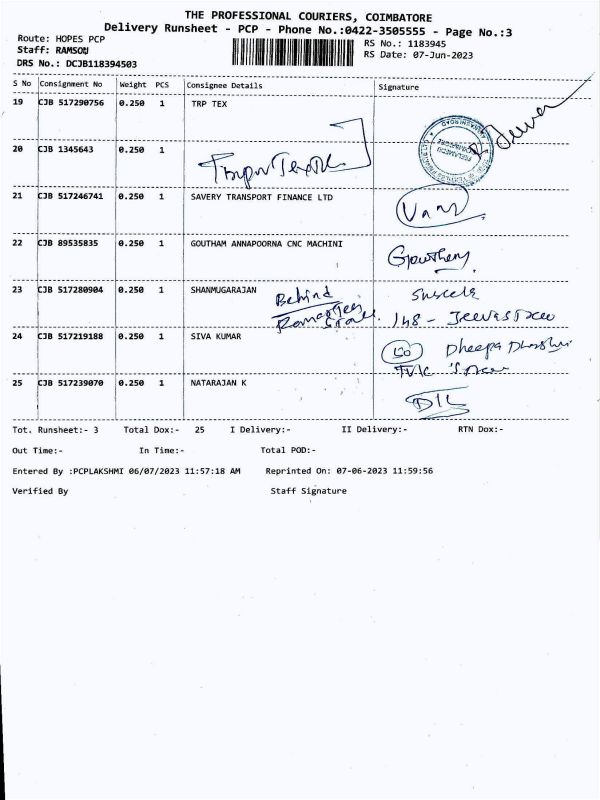 THE PROFESSIONAL COURIERS, COIMBATORE
Delivery Runsheet - PCP - Phone No.:0422-3505555 - Page No.:3
Route: HOPES PCP
Staff: RAMSOU
DRS No.: DCJB118394503
RS No.: 1183945
RS Date: 07-Jun-2023
S No Consignment No Weight PCS Consignee Details Signature
19 CJB 517290756 0.250 1 TRP TEX
20 CJB 1345643 0.250 1
21 CJB 517246741 0.250 1 SAVERY TRANSPORT FINANCE LTD
22 CJB 89535835 0.250 1 GOUTHAM ANNAPOORNA CNC MACHINI
23 CJB 517280904 0.250 1 SHANMUGARAJAN Behind
148 -
24 CJB 517219188 0.250 1 SIVA KUMAR
25 CJB 517239070 0.250 1 NATARAJAN K
Tot. Runsheet:- 3 Total Dox:- 25 I Delivery:- II Delivery:- RTN Dox:-
Out Time:- In Time:- Total POD:-
Entered By :PCPLAKSHMI 06/07/2023 11:57:18 AM Reprinted On: 07-06-2023 11:59:56
Verified By Staff Signature